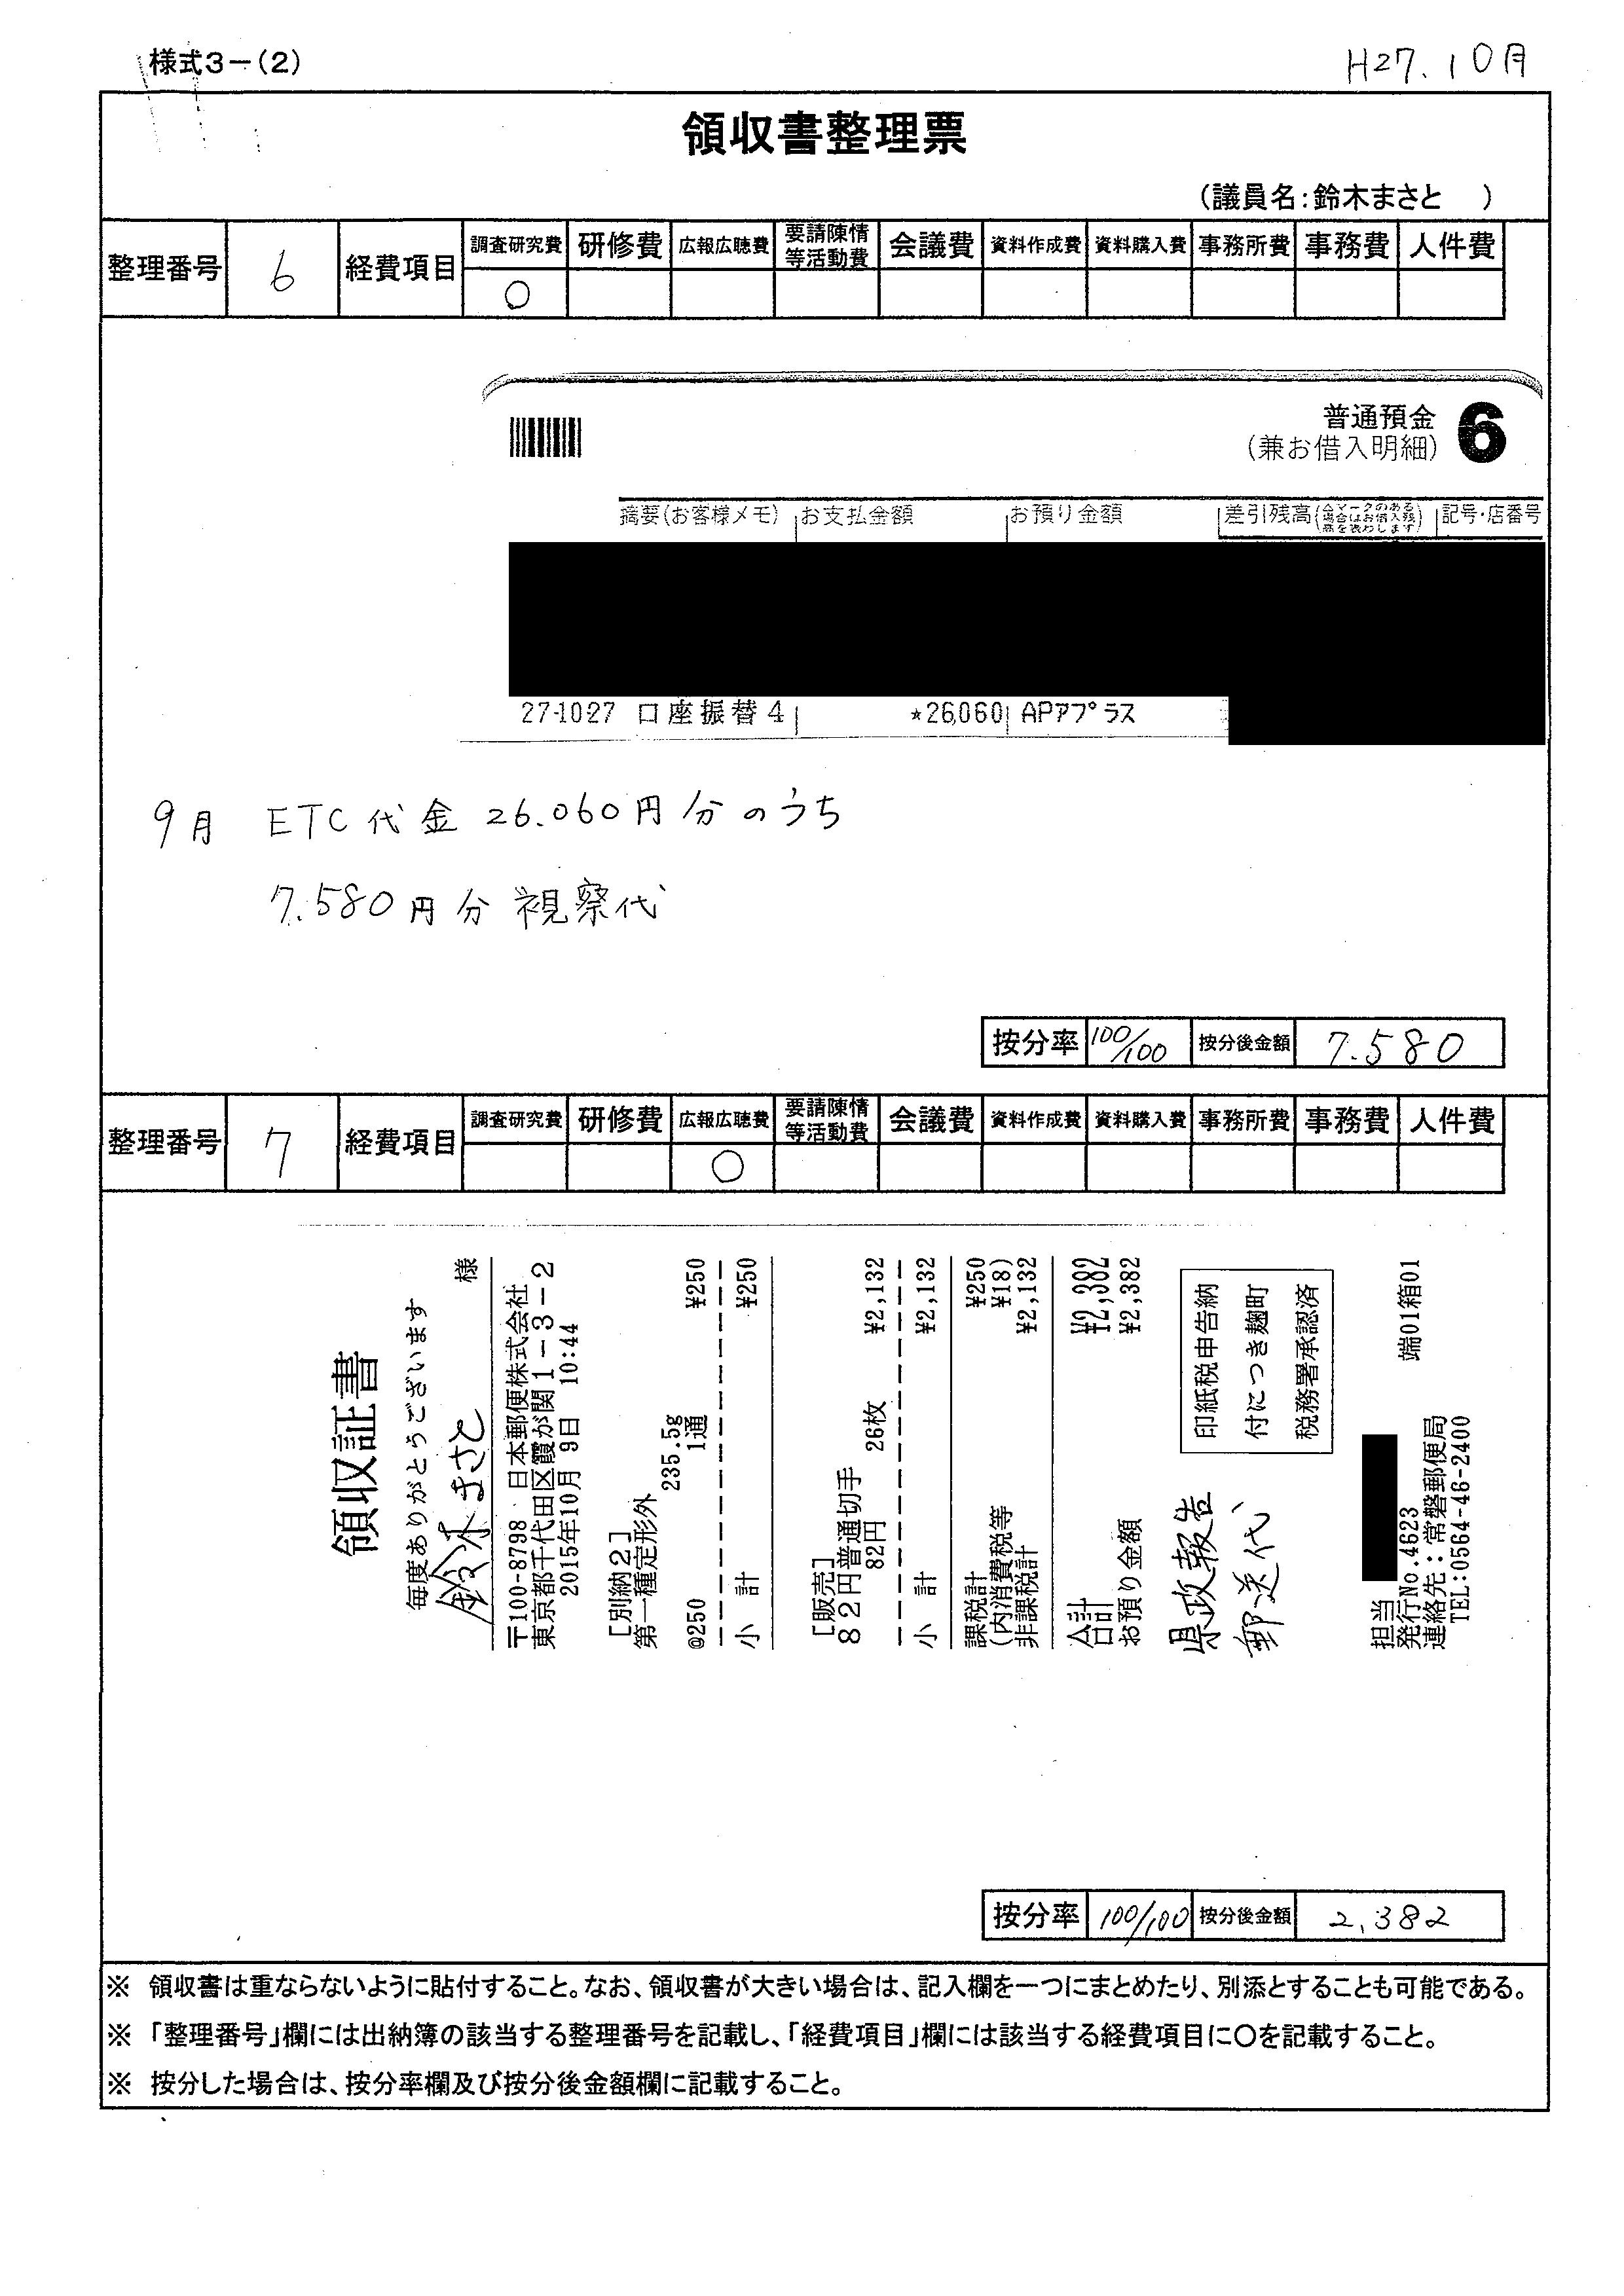 様式3－(2)
H27.10月
領収書整理票
(議員名:鈴木まさと　)
整理番号 6 経費項目 調査研究費 研修費 広報広聴費 要請陳情等活動費 会議費 資料作成費 資料購入費 事務所費 事務費 人件費
○
普通預金 6
(兼お借入明細)
摘要(お客様メモ) お支払金額 お預り金額 差引残高(△マークのある場合はお借入残高を表わします) 記号・店番号
27-10-27 口座振替4 *26,060 APアプラス
9月 ETC代金 26.060円分のうち
7.580円分 視察代
按分率 100/100 按分後金額 7.580
整理番号 7 経費項目 調査研究費 研修費 広報広聴費 要請陳情等活動費 会議費 資料作成費 資料購入費 事務所費 事務費 人件費
○
領収証書
毎度ありがとうございます
鈴木まさと 様
〒100-8798 日本郵便株式会社
東京都千代田区霞が関1－3－2
2015年10月 9日 10:44
[別納2]
第一種定形外
235.5g
@250 1通 ¥250
小 計 ¥250
[販売]
82円普通切手
82円 26枚 ¥2,132
小 計 ¥2,132
課税計 ¥250
(内消費税等 ¥18)
非課税計 ¥2,132
合計 ¥2,382
お預り金額 ¥2,382
県政報告
郵送代
印紙税申告納
付につき麹町
税務署承認済
担当
発行No.4623 端01箱01
連絡先:常磐郵便局
TEL:0564-46-2400
按分率 100/100 按分後金額 2,382
※ 領収書は重ならないように貼付すること。なお、領収書が大きい場合は、記入欄を一つにまとめたり、別添とすることも可能である。
※ 「整理番号」欄には出納簿の該当する整理番号を記載し、「経費項目」欄には該当する経費項目に○を記載すること。
※ 按分した場合は、按分率欄及び按分後金額欄に記載すること。